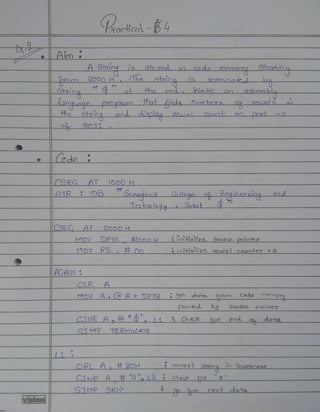 Practical - 4
4.2
• Aim :
A string is stored in code memory starting
from 2000 H. The string is terminated by
string "$" at the end. Write an assembly
language program that finds numbers of vowels in
the string and display vowel count on port - 0
of 8051.
• Code :
CSEG AT 1000 H
STR : DB " College of Engineering and
Technology , Surat $"
CSEG AT 0000 H
MOV DPTR, #1000H ; initialize source pointer
MOV R5, # 00 ; initialize vowel counter = 0
AGAIN :
CLR A
MOV A, @ A + DPTR ; get data from code memory
pointed by source pointer
CJNE A, # '$', L1 ; check for end of data
SJMP TERMINATE
L1 :
ORL A, # 20H ; convert string in lowercase
CJNE A, # 'a', L2 ; check for "a"
SJMP SKIP ; go for next data
vision